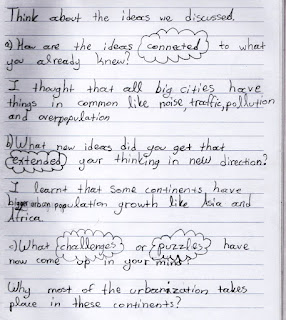 Think about the ideas we discussed.
a) How are the ideas connected to what
you already knew?
I thought that all big cities have
things in common like noise, traffic, pollution
and overpopulation
b) What new ideas did you get that
extended your thinking in new direction?
I learnt that some continents have
bigger urban population growth like Asia and
Africa
c) What challenges or puzzles have
now come up in your mind?
Why most of the urbanization takes
place in these continents?